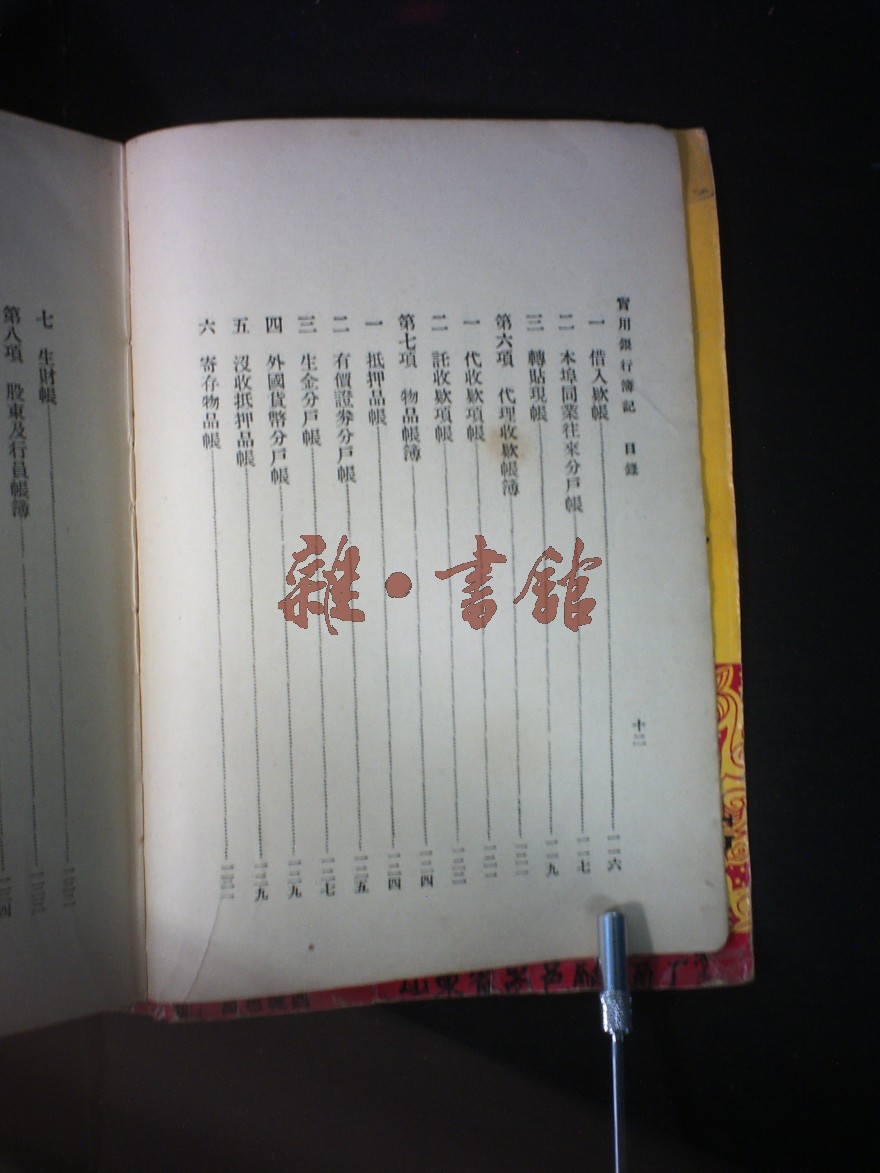 實用銀行簿記 目錄 十二
一 借入款帳 一一六
二 本埠同業往來分戶帳 一一七
三 轉貼現帳 一一九
第六項 代理收款帳簿 一二一
一 代收款項帳 一二一
二 託收款項帳 一二二
第七項 物品帳簿 一二四
一 抵押品帳 一二四
二 有價證券分戶帳 一二五
三 生金分戶帳 一二七
四 外國貨幣分戶帳 一二九
五 沒收抵押品帳 一二九
六 寄存物品帳
七 生財帳
第八項 股東及行員帳簿
雜·書館